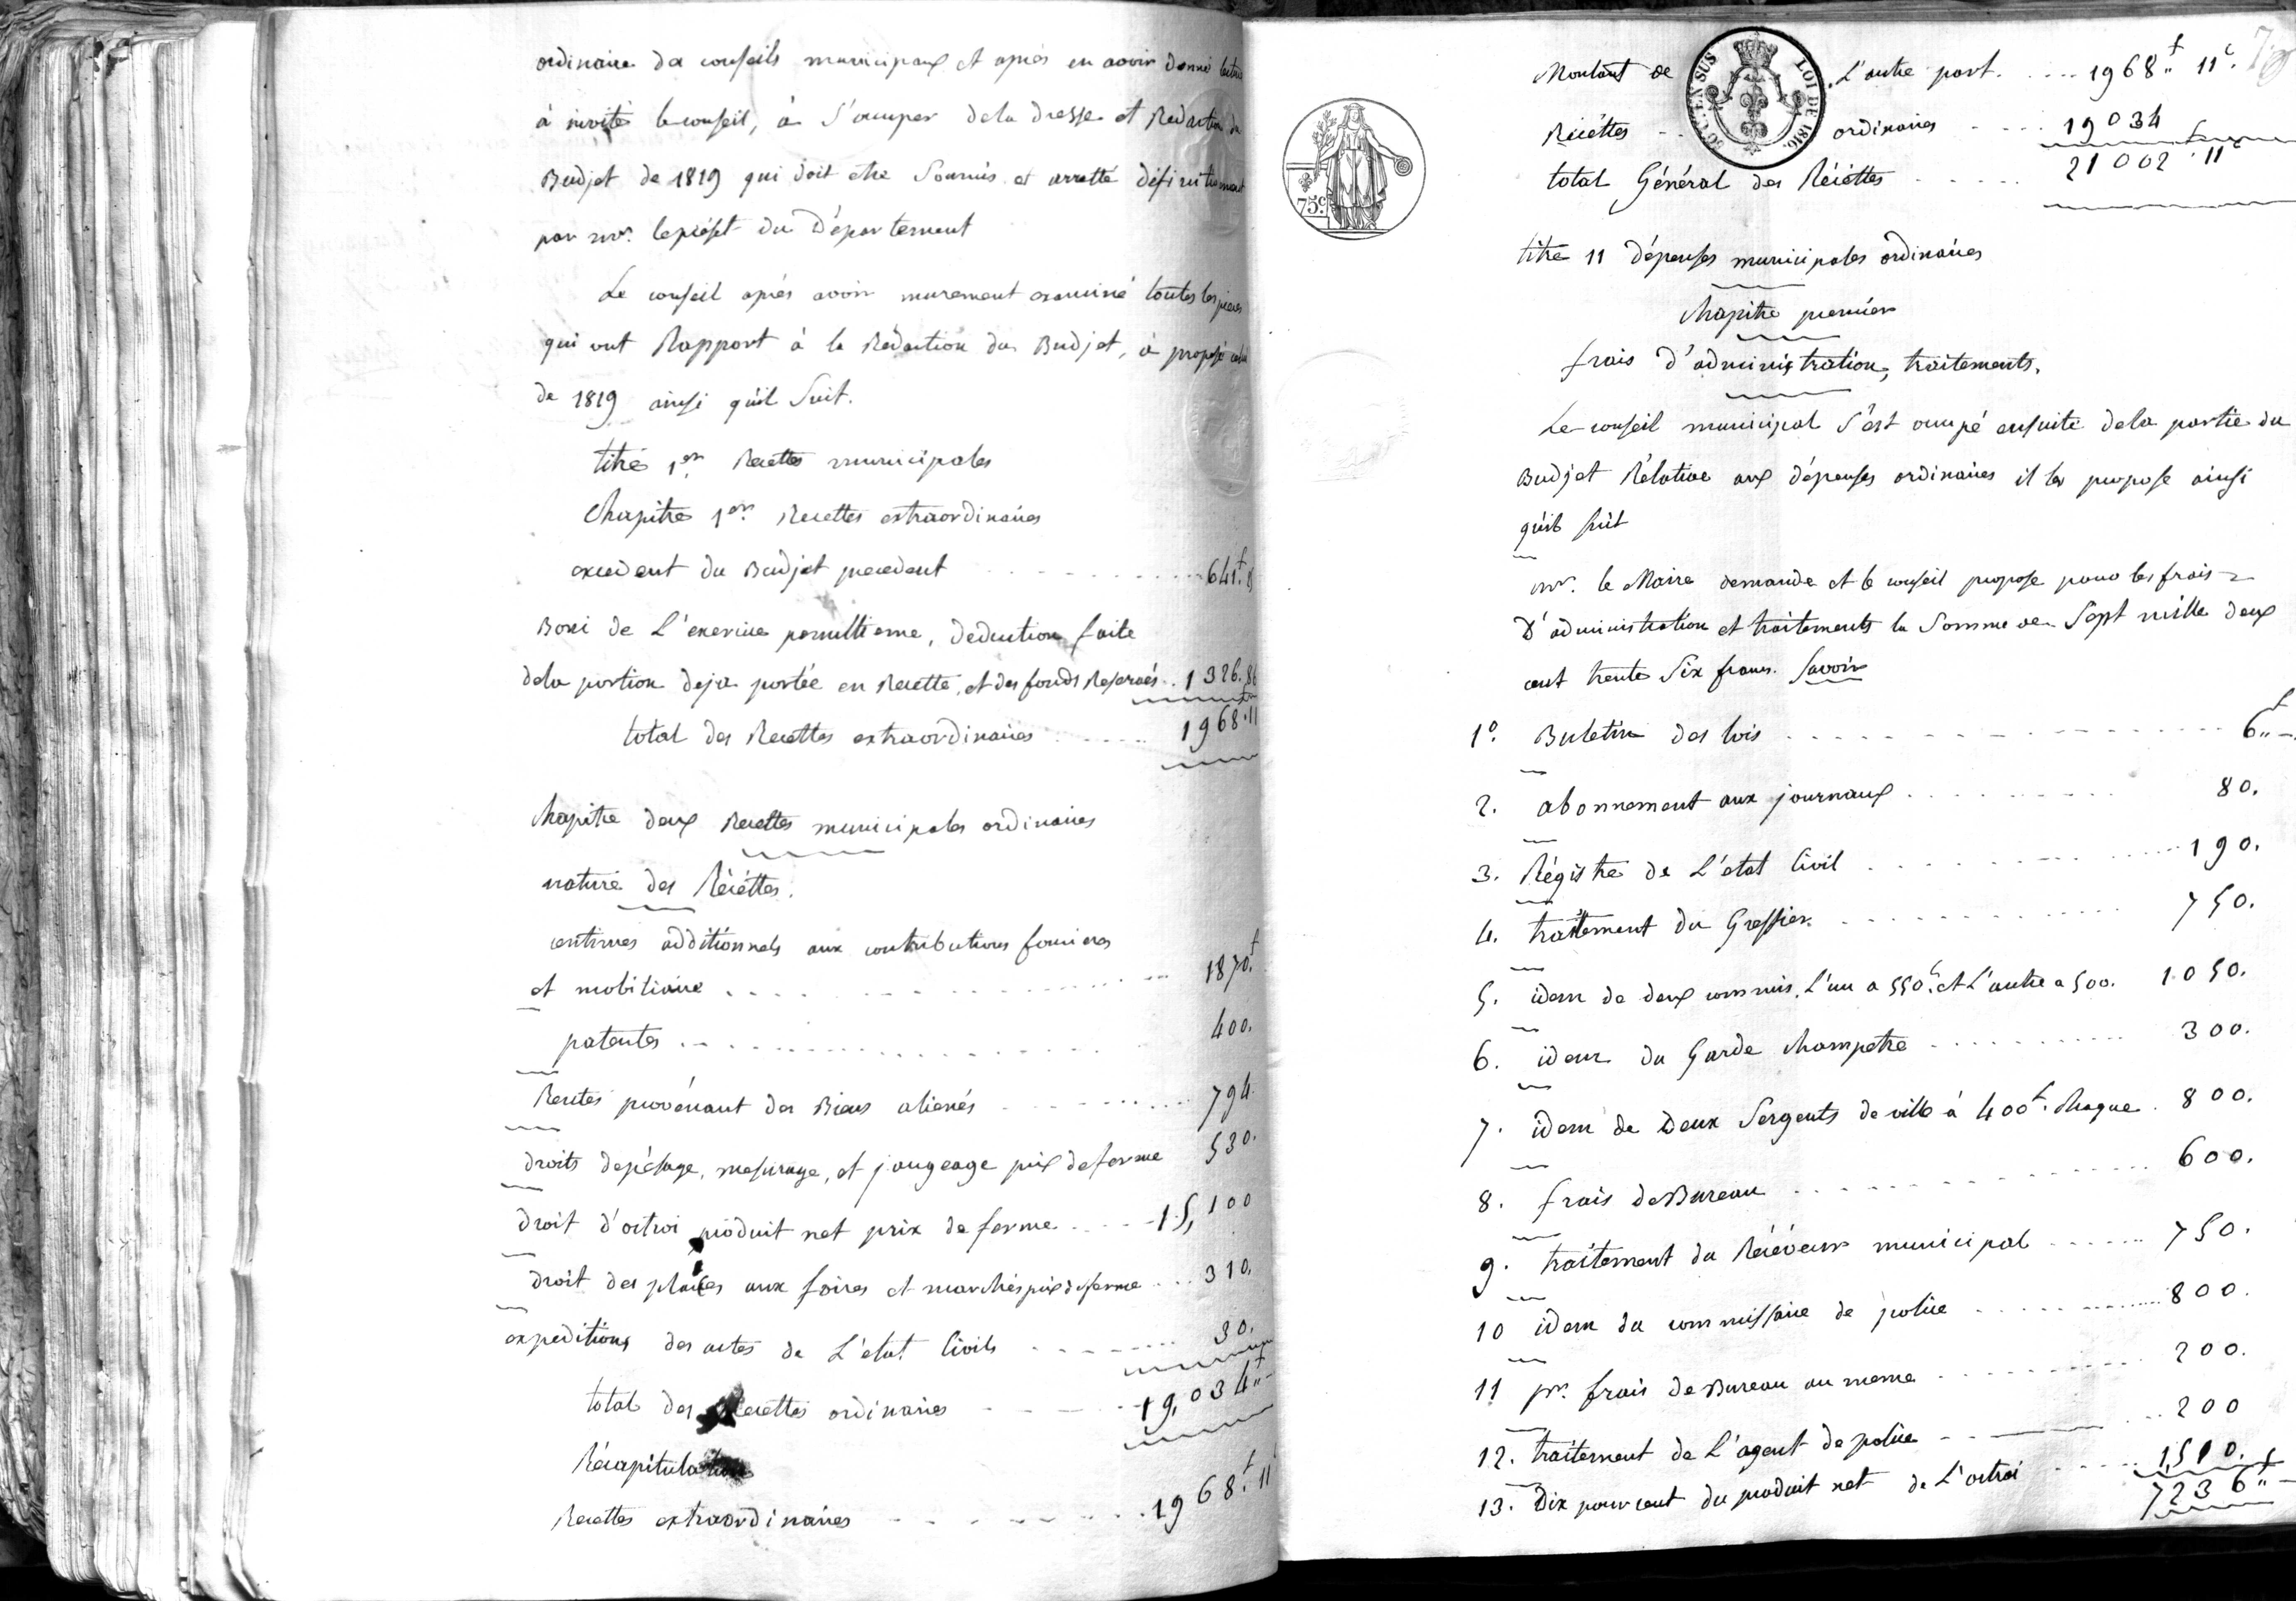 ordinaire des conseils municipaux et après en avoir donné lecture
à invité le conseil, à s'occuper de la dresse et Redaction du
Budjet de 1819 qui doit etre Soumis et arretté définitivement
par mr. le préfet du Département
Le conseil après avoir murement examiné toutes les pieces
qui ont Rapport à la Rédaction du Budjet, à proposé celui
de 1819 ainsi qu'il Suit.
titre 1er Recettes municipales
Chapitre 1er Recettes extraordinaires
excedent du Budjet precedent 641f.
Boni de L'exercice penultieme, deduction faite
de la portion deja portée en Recette, et des fonds Reservés 1326.86
total des Recettes extraordinaires 1968.11
Chapitre deux Recettes municipales ordinaires
nature des Récéttes.
centimes additionnels aux contributions foncieres
et mobiliaire 1870f
patentes 400.
Rentes provénant des Biens alienés 794.
droits de pésage, mesurage, et jaugeage prix de ferme 530.
droit d'octroi produit net prix de ferme 15,100
droit des places aux foires et marchés prix de ferme 310.
expeditions des actes de L'état Civils 30.
total des Recettes ordinaires 19,034f
Récapitulation
Recettes extraordinaires 1968f.11
79
Montant de L'autre part. 1968f 11c.
Récéttes ordinaires 19034
total Général des Récéttes 21002f.11c
50 C. EN SUS
LOI DE 1816.
75c
titre 11 dépenses municipales ordinaires
Chapitre premier
frais d'administration, traitements.
Le conseil municipal s'est occupé ensuite de la partie du
Budjet Rélative aux dépenses ordinaires il les propose ainsi
qu'il suit
mr. le Maire demande et le conseil propose pour les frais
D'administration et traitements la Somme de Sept mille deux
cent trente Six francs. Savoir
1o. Buletin des lois 6f
2. abonnement aux journaux 80.
3. Régistre de L'état Civil 190.
4. traitement du Greffier 750.
5. idem de deux commis, L'un a 550f. et L'autre a 500. 1050.
6. idem du Garde champetre 300.
7. idem de Deux Sergents de ville à 400f. chaque 800.
8. frais de Bureau 600.
9. traitement du Récéveur municipal 750.
10 idem du commissaire de police 800.
11 pr. frais de Bureau au meme 200.
12. traitement de L'agent de police 200
13. Dix pour cent du produit net de L'octroi 1,510.
7236f